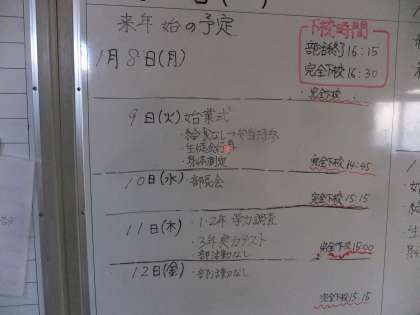 来年 始の予定
下校時間
部活終了 16:15
完全下校 16:30
1月8日(月)
・完全下校
9日(火) 始業式
・給食なし→弁当持参
・身体測定
完全下校 14:45
10日(水) ・部長会
完全下校 15:15
11日(木) ・1・2年 学力調査
・3年実力テスト
・部活動なし
完全下校 15:00
12日(金) ・部活動なし
完全下校 15:15